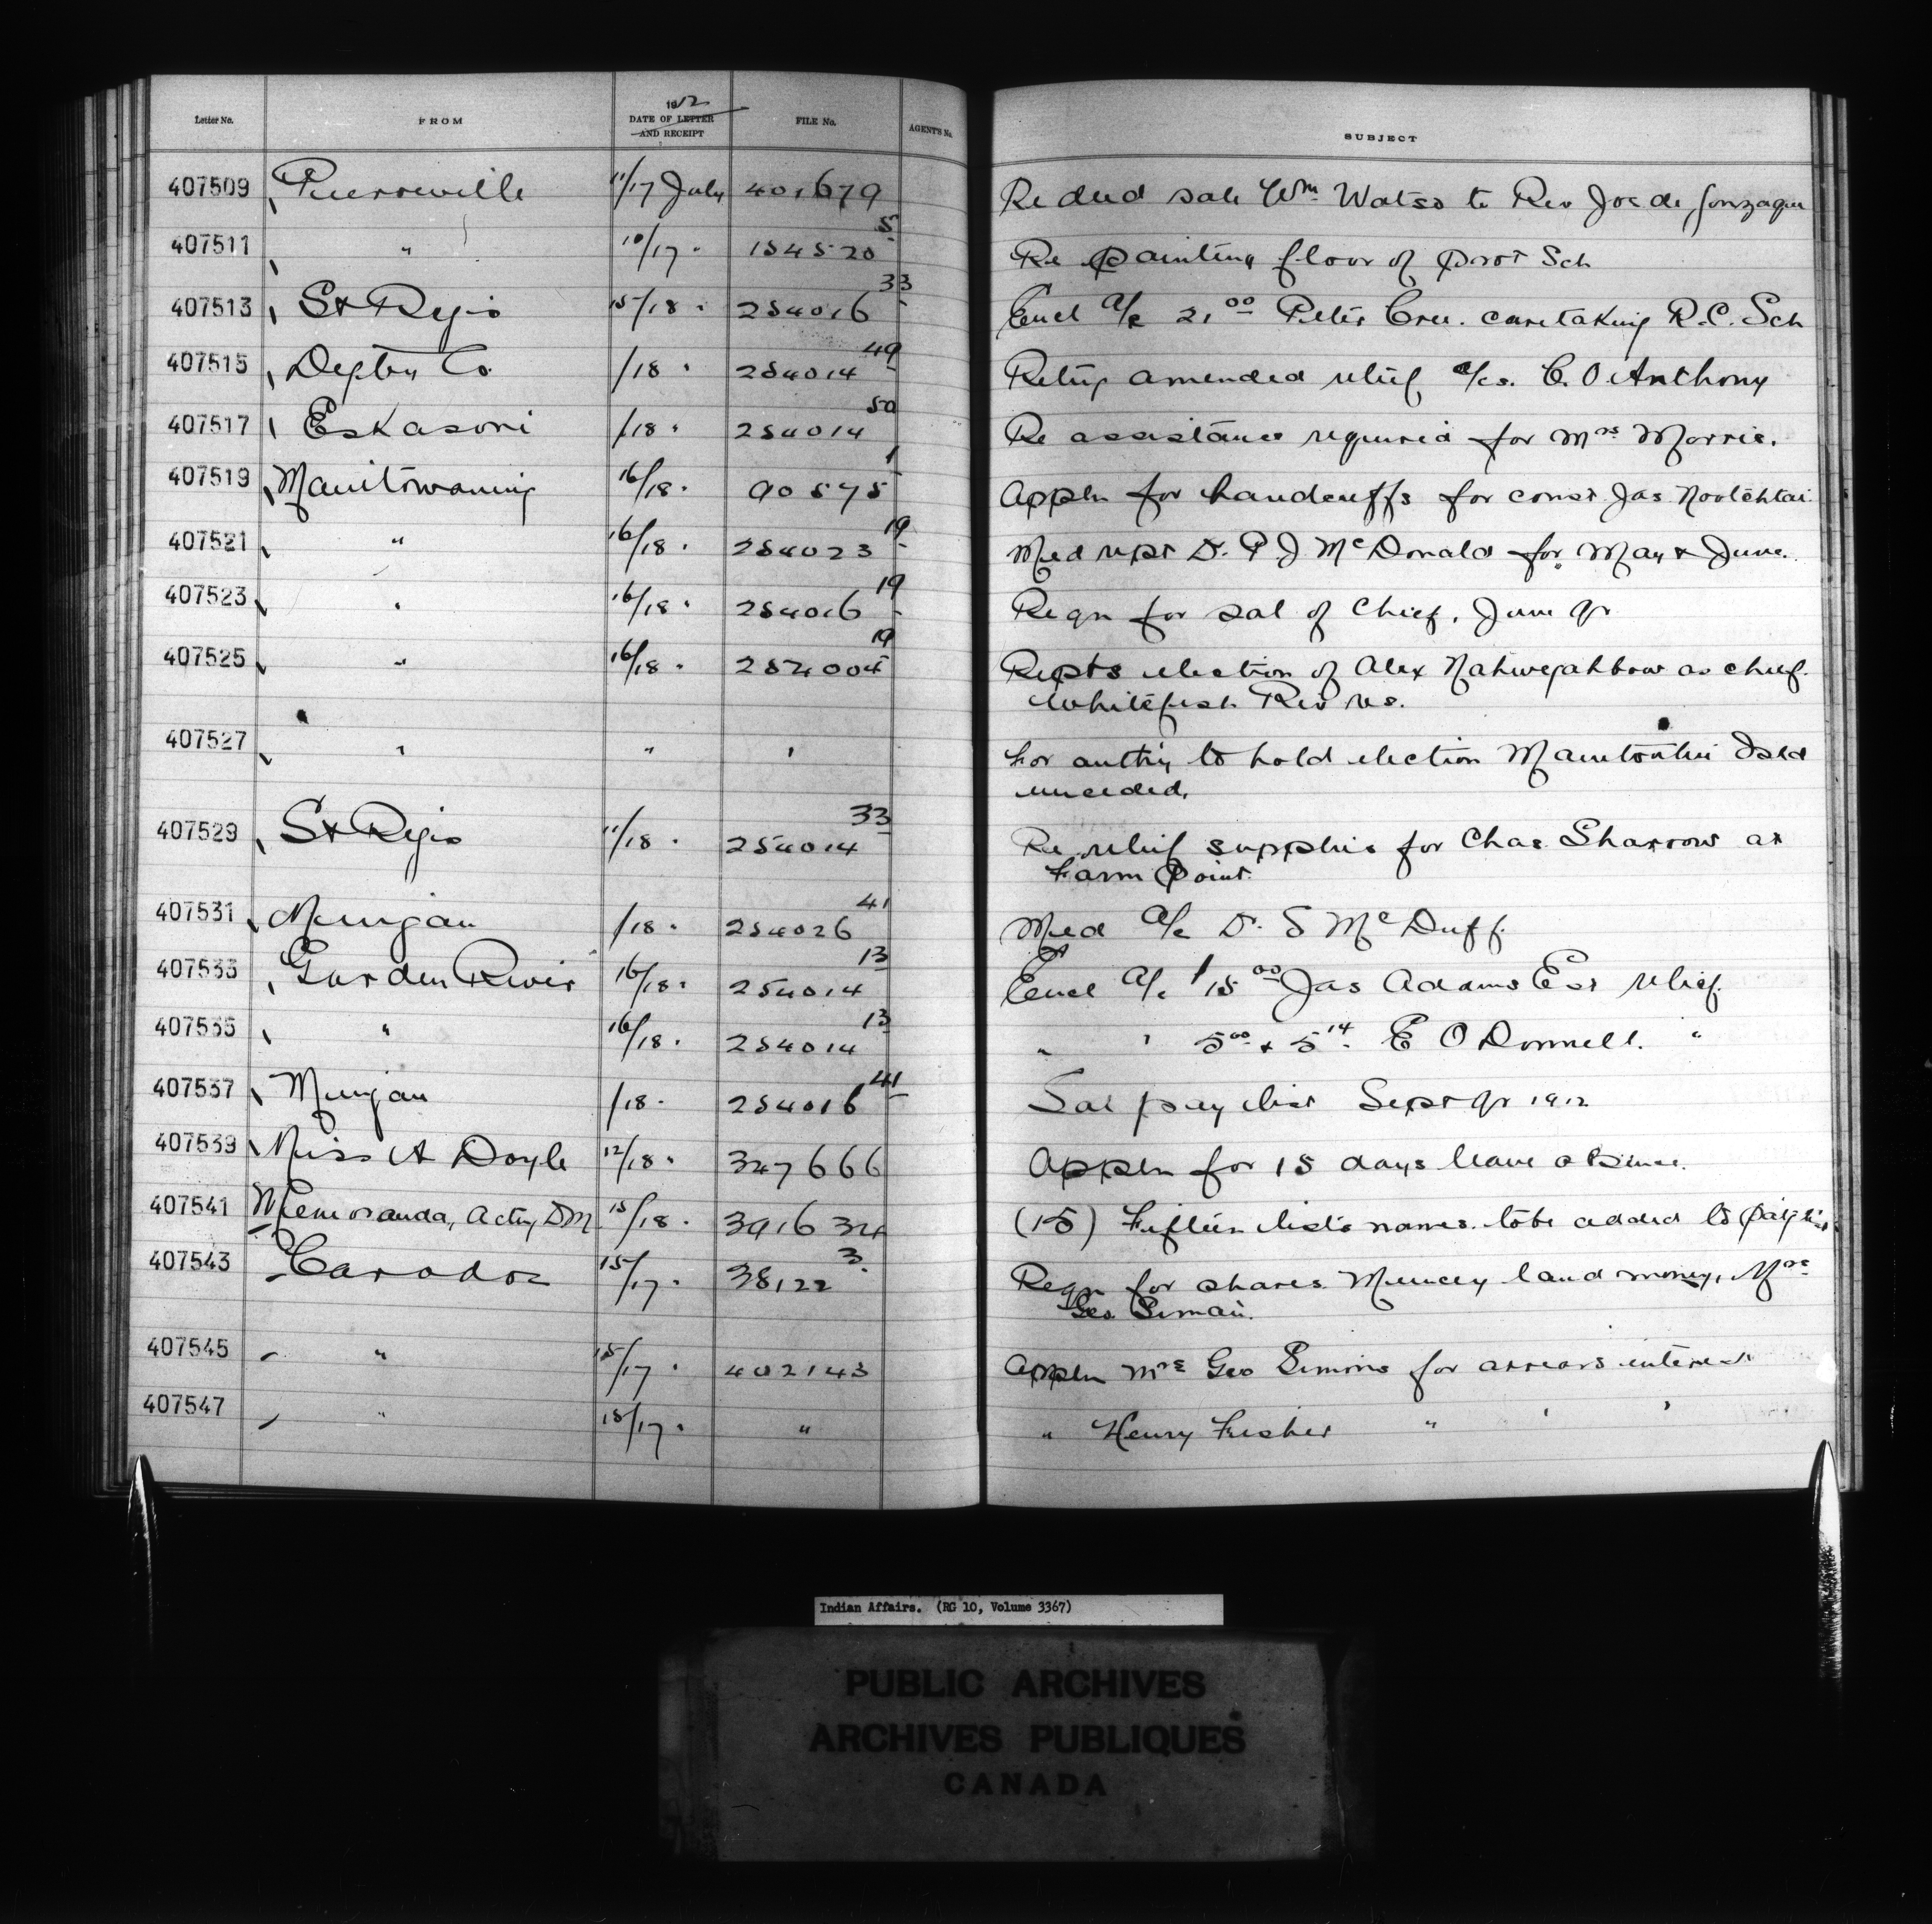 Letter No. FROM 1912 DATE OF LETTER AND RECEIPT FILE No. AGENT'S No. SUBJECT
407509 Pierreville 11/17 July 401679 Re deed sale Wm Watso to Rev Jos de Gonzague
407511 " 10/17 " 154520 5 Re painting floor of prot Sch
407513 St Regis 15/18 " 254016 33 Encl a/c 21 00 Peter Cree. caretaking R.C. Sch
407515 Digby Co /18 " 254014 49 Retng amended relief a/cs. C. O Anthony
407517 Eskasoni /18 " 254014 50 Re assistance required for Mrs Morris.
407519 Manitowaning 16/18 " 90575 1 Appln for handcuffs for const Jas Nootchtai
407521 " 16/18 " 254023 19 Med rept Dr. P J McDonald for May & June.
407523 " 16/18 " 254016 19 Reqn for sal of Chief, June qr
407525 " 16/18 " 254004 19 Repts election of Alex Nahwegahbow as chief.
Whitefish Riv res.
407527 " " " For authy to hold election Manitoulin Isld
unceded.
407529 St Regis 11/18 " 254014 33 Re relief supplies for Chas Sharrow at
Farm Point.
407531 Mungan /18 " 254026 41 Med a/c Dr. S McDuff.
407533 Garden River 16/18 " 254014 13 Encl a/c 15 00 Jas Adams Est relief.
407535 " 16/18 " 254014 13 " " 5 00 & 5 14 E O Donnell. "
407537 Mungan /18 " 254016 41 Sal pay list Sept qr 1912
407539 Miss A Doyle 12/18 " 347666 Appln for 15 days leave absence.
407541 Memoranda, Actg DM 15/18 " 391634 (15) Fifteen lists names. to be added to pay list
407543 Caradoc 15/17 " 38122 3 Reqn for shares Muncey land money, Mrs
Geo
407545 " 15/17 " 402143 Appln Mrs Geo Simons for arrears interest
407547 " 15/17 " " " Henry Fisher " " "
Indian Affairs. (RG 10, Volume 3367)
PUBLIC ARCHIVES
ARCHIVES PUBLIQUES
CANADA